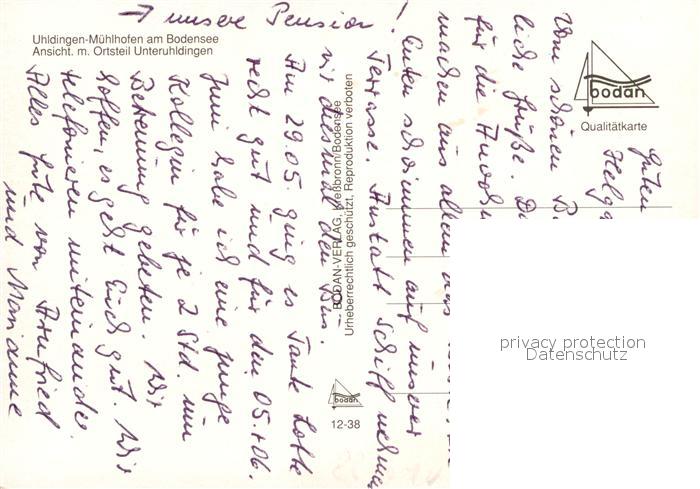 → unsere Pension!
Uhldingen-Mühlhofen am Bodensee
Ansicht. m. Ortsteil Unteruhldingen
bodan
Qualitätkarte
Guten
Helga
Vom schönen B
liche Grüße. Di
für die
machen aus allem das
Enten schwimmen auf unserer
Terrasse. Anstatt Schiff nehmen
wir diesmal den Bus.
Am 29.05. ging es Tante Lotte
recht gut und für den 05.+06.
Juni habe ich eine junge
Kollegin für je 2 Std. um
Betreuung gebeten. Wir
hoffen, es geht Euch gut. Wir
telefonieren miteinander.
Alles Gute von Arnfried
und Marianne
BODAN-VERLAG, Kreßbronn/Bodensee
Urheberrechtlich geschützt, Reproduktion verboten
bodan
12-38
privacy protection
Datenschutz